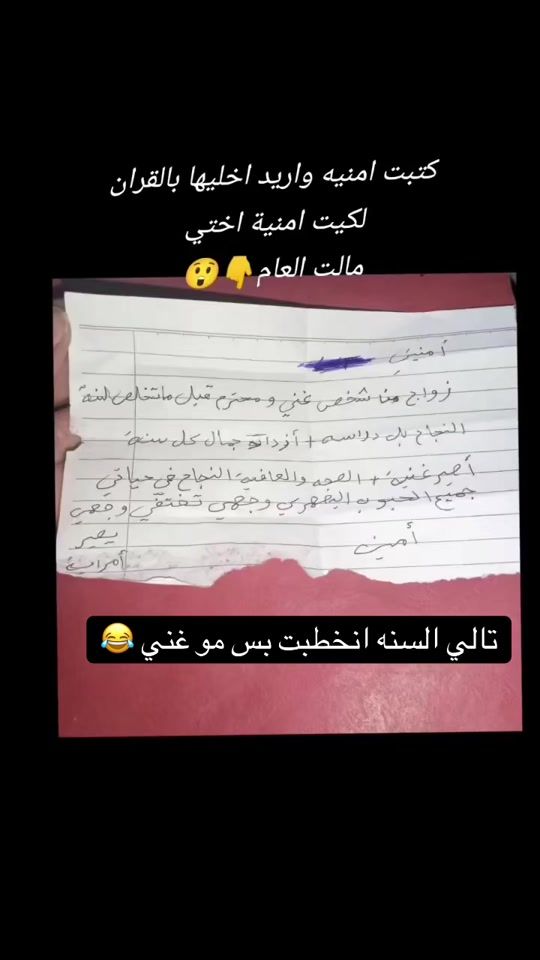 كتبت امنيه واريد اخليها بالقران
لكيت امنية اختي
مالت العام 👇😲
أمنيتي
زواج من شخص غني ومحترم قبل ما تخلص السنة
النجاح بل دراسه + أزداد جمال كل سنة
أصير غنية + الصحه والعافية النجاح في حياتي
جميع الحبوب البضهري وجهي تختفي وجهي
يصير
أمين
أمراية
تالي السنه انخطبت بس مو غني 😂